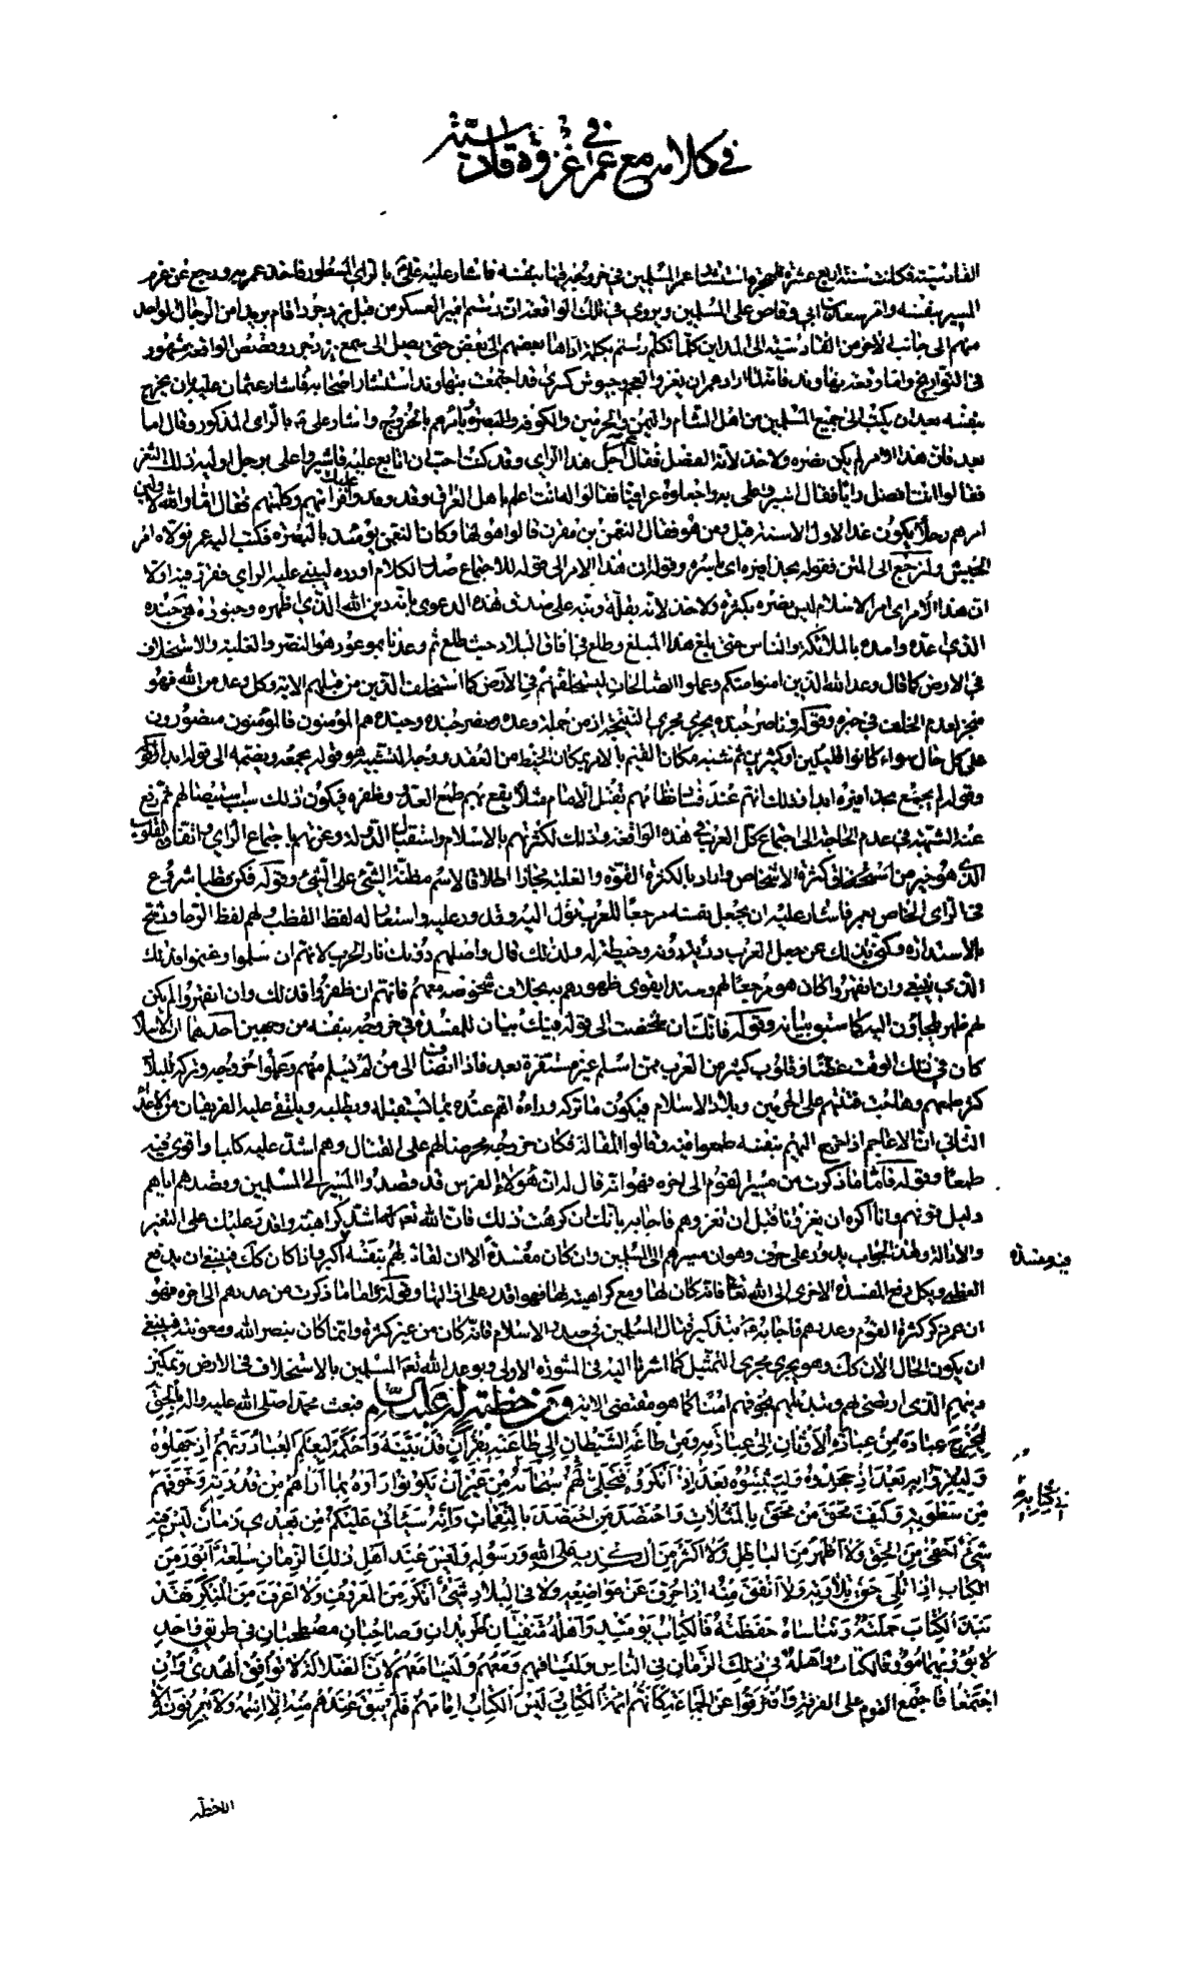 في كلامه مع عمر في غزوة قادسية
القادسية فكانت سنة اربع عشرة للهجرة استشار عمر المسلمين في خروجه فيها بنفسه فاشار عليه علي بالراي المسطور فاخذ عمر به ورجع عن عزم
المسير بنفسه وامر سعد بن ابي وقاص على المسلمين ويروى في تلك الواقعة ان رستم امير العسكر من قبل يزدجرد اقام بريدا من الرجال الواحد
منهم الى جانب الاخر من القادسية الى المداين كلما تكلم رستم بكلمة اداها بعضهم الى بعض حتى يصل الى سمع يزدجرد وقصص الواقعة مشهور
في التواريخ واما وقعة نهاوند فانه لما اراد عمر ان يغزو العجم وجيوش كسرى قد اجتمعت بنهاوند استشار اصحابه فاشار عثمان عليه بان يخرج
بنفسه بعد ان يكتب الى جميع المسلمين من اهل الشام واليمن والحرمين والكوفة والبصرة ويامرهم بالخروج واشار علي بالراي المذكور وقال اما
بعد فان هذا الامر لم يكن نصره ولا خذلانه الفصل فقال عمر اجل هذا الراي وقد كنت احب ان اتابع عليه فاشيروا علي برجل اوليه ذلك الثغر
فقالوا انت افضل رايا فقال اشيروا علي به واجعلوه عراقيا فقالوا له انت اعلم باهل العراق وقد وفدوا عليك فرايتهم وكلمتهم فقال اما والله لاولين
امرهم رجلا يكون غدا لاول الاسنة قيل ومن هو فقال النعمن بن مقرن قالوا هو لها وكان النعمن يومئذ بالبصرة فكتب اليه عمر فولاه امر
الجيش ولنرجع الى المتن فقوله بحذافيره اي باسره وقوله ان هذا الامر الى قوله للاجتماع صدر الكلام اورده ليبني عليه الراي فقرر فيه اولا
ان هذا الامر اي امر الاسلام ليس نصره بكثرة ولا خذلانه بقلة ونبه على صدق هذه الدعوى بانه دين الله الذي اظهره وجنوده هي جنده
الذي اعده وامده بالملائكة والناس حتى بلغ هذا المبلغ وطلع في افاق البلاد حيث طلع ثم وعدنا بموعود هو النصر والغلبة والاستخلاف
في الارض كما قال وعد الله الذين امنوا منكم وعملوا الصالحات ليستخلفنهم في الارض كما استخلف الذين من قبلهم الاية وكل وعد من الله فهو
منجز لعدم الخلف في خبره وقوله وناصر جنده يجري مجرى النتيجة اذ من جملة وعده نصر جنده وجنده هم المؤمنون فالمؤمنون منصورون
على كل حال سواء كانوا قليلين او كثيرين ثم شبه مكان القيم بالامر بمكان الخيط من العقد ووجه التشبيه هو قوله يجمعه ويضمه الى قوله ابدا
وقوله لم يجتمع بحذافيره ابدا وذلك انهم عند فساد نظامهم بقتل الامام مثلا يقع بهم طمع العدو وظفره فيكون ذلك سبب استيصالهم ثم رفع
عنه الشبهة في عدم الحاجة الى اجتماع كل العرب في هذه الواقعة وذلك لكثرتهم بالاسلام واستقبال الدولة وعزتهم باجتماع الراي واتفاق القلوب
الذي هو خير من كثرة الاشخاص واراد بالكثرة القوة والغلبة مجازا اطلاقا لاسم مظنة الشئ على الشئ وقوله فكن قطبا شروع
في الراي الخاص بعمر فاشار عليه ان يجعل نفسه مرجعا للعرب تؤل اليه وتدور عليه واستعار له لفظ القطب ولهم لفظ الرحا ورشح
بالاستدارة وكنى بذلك عن جعل العرب دريئة دونه وحيطة له ولذلك قال واصلهم دونك نار الحرب لانهم ان سلموا وغنموا فذلك
الذي ينبغي وان انقهروا كان هو مرجعا لهم وسندا يقوى ظهورهم به بخلاف شخوصه معهم فانهم ان ظفروا فذلك وان انقهروا لم يكن
لهم ظهر يلجاون اليه كما سبق بيانه وقوله فانك ان شخصت الى قوله فيك بيان للمفسدة في خروجه بنفسه من وجهين احدهما ان الاسلام
كان في ذلك الوقت غضا وقلوب كثير من العرب ممن اسلم غير مستقرة بعد فاذا انضاف الى من لم يسلم منهم وعلموا خروجه وتركه للبلاد
كثر طمعهم وهاجت فتنتهم على الحرمين وبلاد الاسلام فيكون ما تركه وراءه اهم عنده مما يستقبله ويطلبه ويلتقي عليه الفريقان من الاعداء
الثاني ان الاعاجم اذا خرج اليهم بنفسه طمعوا فيه وقالوا المقالة فكان خروجه محرضا لهم على القتال وهم اشد عليه كلبا واقوى فيه
طمعا وقوله فاما ما ذكرت من مسير القوم الى اخره فهو انه قال له ان هؤلاء الفرس قد قصدوا المسير الى المسلمين وقصدهم اياهم
دليل قوتهم وانا اكره ان يغزونا قبل ان نغزوهم فاجابه بانك ان كرهت ذلك فان الله تعالى اشد كراهية واقدر عليك على التغير
والازالة وهذا الجواب يدور على حرف وهو ان مسيرهم الى المسلمين وان كان مفسدة الا ان لقاءه لهم بنفسه اكبر واذا كان كك فينبغي ان يدفع
العظمى ويكل دفع المفسدة الاخرى الى الله تعالى فانه كان لها ومع كراهيته لها فهو اقدر على ازالتها وقوله واما ما ذكرت من عددهم الى اخره فهو
ان عمر ذكر كثرة القوم وعددهم فاجابه بتذكير قتال المسلمين في صدر الاسلام فانه كان من غير كثرة وانما كان بنصر الله ومعونته فينبغي
ان يكون الحال الان كك وهو يجري مجرى التمثيل كما اشرنا اليه في المشورة الاولى وبوعد الله تعالى المسلمين بالاستخلاف في الارض وتمكين
دينهم الذي ارتضى لهم وتبديلهم بخوفهم امنا كما هو مقتضى الاية ومن خطبة له عليه السلام فبعث محمدا صلى الله عليه واله بالحق
ليخرج عباده من عبادة الاوثان الى عبادته ومن طاعة الشيطان الى طاعته بقران قد بينه واحكمه ليعلم العباد ربهم اذ جهلوه
وليقروا به بعد اذ جحدوه وليثبتوه بعد اذ انكروه فتجلى لهم سبحانه من غير ان يكونوا راوه بما اراهم من قدرته وخوفهم
من سطوته وكيف محق من محق بالمثلات واحتصد من احتصد بالنقمات وانه سياتي عليكم من بعدي زمان ليس فيه
شئ اخفى من الحق ولا اظهر من الباطل ولا اكثر من الكذب على الله ورسوله وليس عند اهل ذلك الزمان سلعة ابور من
الكتاب اذا تلي حق تلاوته ولا انفق منه اذا حرف عن مواضعه ولا في البلاد شئ انكر من المعروف ولا اعرف من المنكر فقد
نبذ الكتاب حملته وتناساه حفظته فالكتاب يومئذ واهله منفيان طريدان وصاحبان مصطحبان في طريق واحد
لا يؤويهما مؤو فالكتاب واهله في ذلك الزمان في الناس وليسا فيهم ومعهم وليسا معهم لان الضلالة لا توافق الهدى وان
اجتمعا فاجتمع القوم على الفرقة وافترقوا عن الجماعة كانهم ائمة الكتاب وليس الكتاب امامهم فلم يبق عندهم منه الا اسمه ولا يعرفون الا
فيه مفسدة
في كتابه
الاخطه